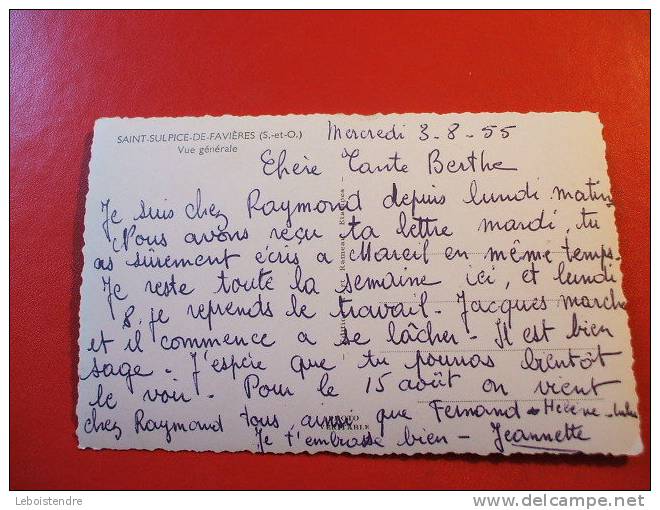 SAINT-SULPICE-DE-FAVIÈRES (S.-et-O.)
Vue générale
Mercredi 3-8-55
Chère Tante Berthe
Je suis chez Raymond depuis lundi matin
Nous avons reçu ta lettre mardi, tu
as sûrement écris a Mareil en même temps.
Je reste toute la semaine ici, et lundi
8, je reprends le travail. Jacques marche
et il commence a se lâcher. Il est bien
sage. J'espère que tu pourras bientôt
le voir. Pour le 15 août on vient
chez Raymond tous, ainsi que Fernand Hélène
Je t'embrasse bien - Jeannette
Rameau, Etampes
PHOTO
VERITABLE
Leboistendre
delcampe.net